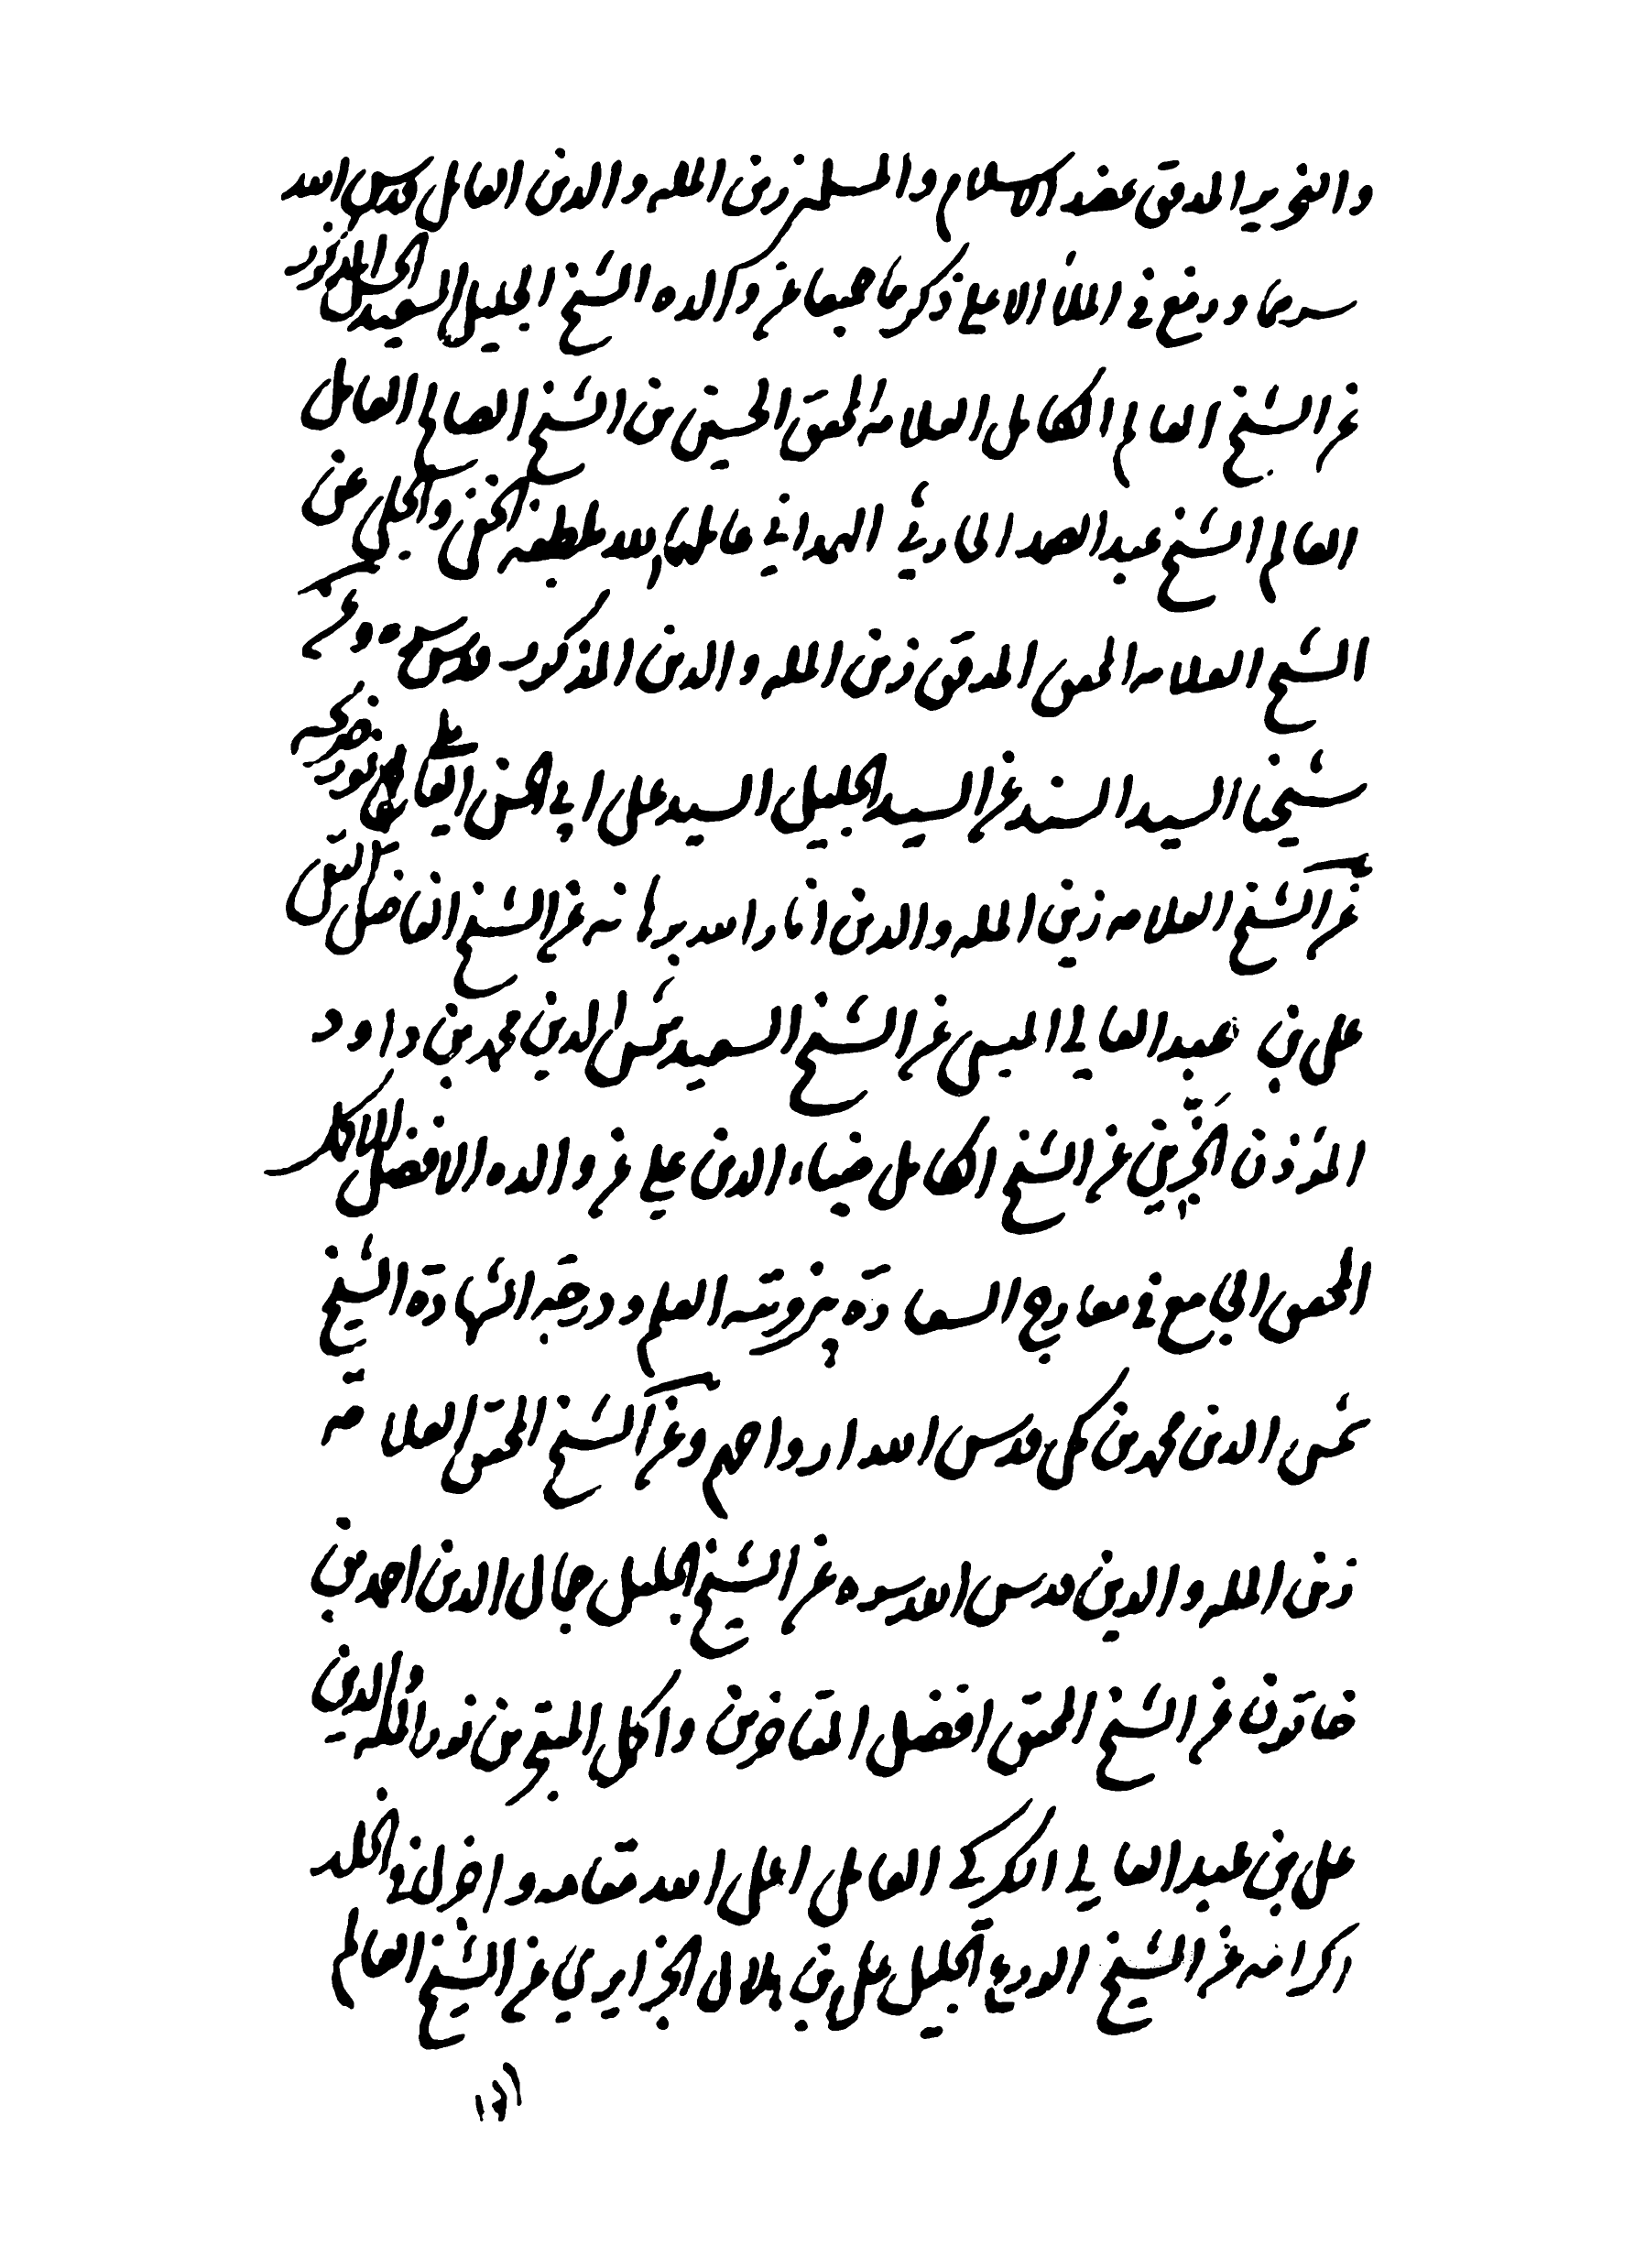 والنحرير المدقق عضد الاسلام والمسلمين زين المله والدين العاملي قدس الله
سرهما ورفع في الملأ الاعلى ذكرهما جميعا عن والده الشيخ الجليل السعيد
عن الشيخ العالم الكامل العلامة المحقق الحسين بن الشيخ الصالح العامل
العالم الشيخ عبد الصمد الحارثي الهمداني عاملهما الله بلطفه الخفي والجلي عن
الشيخ العلامه المحقق المدقق زين المله والدين المذكور قدس سره وعن
شيخنا السيد السند عن السيد الجليل السيد علي ابي الحسن نور ضريحه
عن الشيخ العلامه زين المله والدين انار الله برهانه عن الشيخ الفاضل التقي
علي بن عبد العالي الميسي عن الشيخ السعيد شمس الدين محمد بن داود
المؤذن الجزيني عن الشيخ الكامل ضياء الدين علي عن والده الافضل الاكمل
المحقق الجامع في معارج السعادة بين رتبة العلم ودرجة الشهادة الشيخ
شمس الدين محمد بن مكي قدس الله ارواحهم وعن الشيخ المحقق العلامة
زين المله والدين قدس الله سره عن الشيخ الجليل جمال الدين احمد بن
خاتون عن الشيخ المحقق افضل المتأخرين واكمل المتبحرين نور المله والدين
علي بن عبد العالي الكركي العاملي اعلى الله مقامه و في الخلد
اكرامه عن الشيخ الورع الجليل علي بن هلال الجزايري عن الشيخ العالم